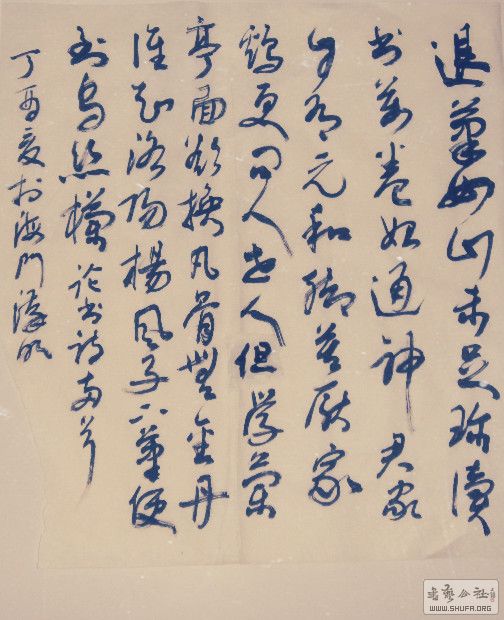 退筆如山未足珍讀
书萬卷始通神 君家
自有元和脚莫厭家
鷄更问人世人但學蘭
亭面欲換凡骨無金丹
誰知洛陽楊風子下筆便
到烏絲欄 論书詩兩首
丁酉夏於海門
書藝公社
WWW.SHUFA.ORG